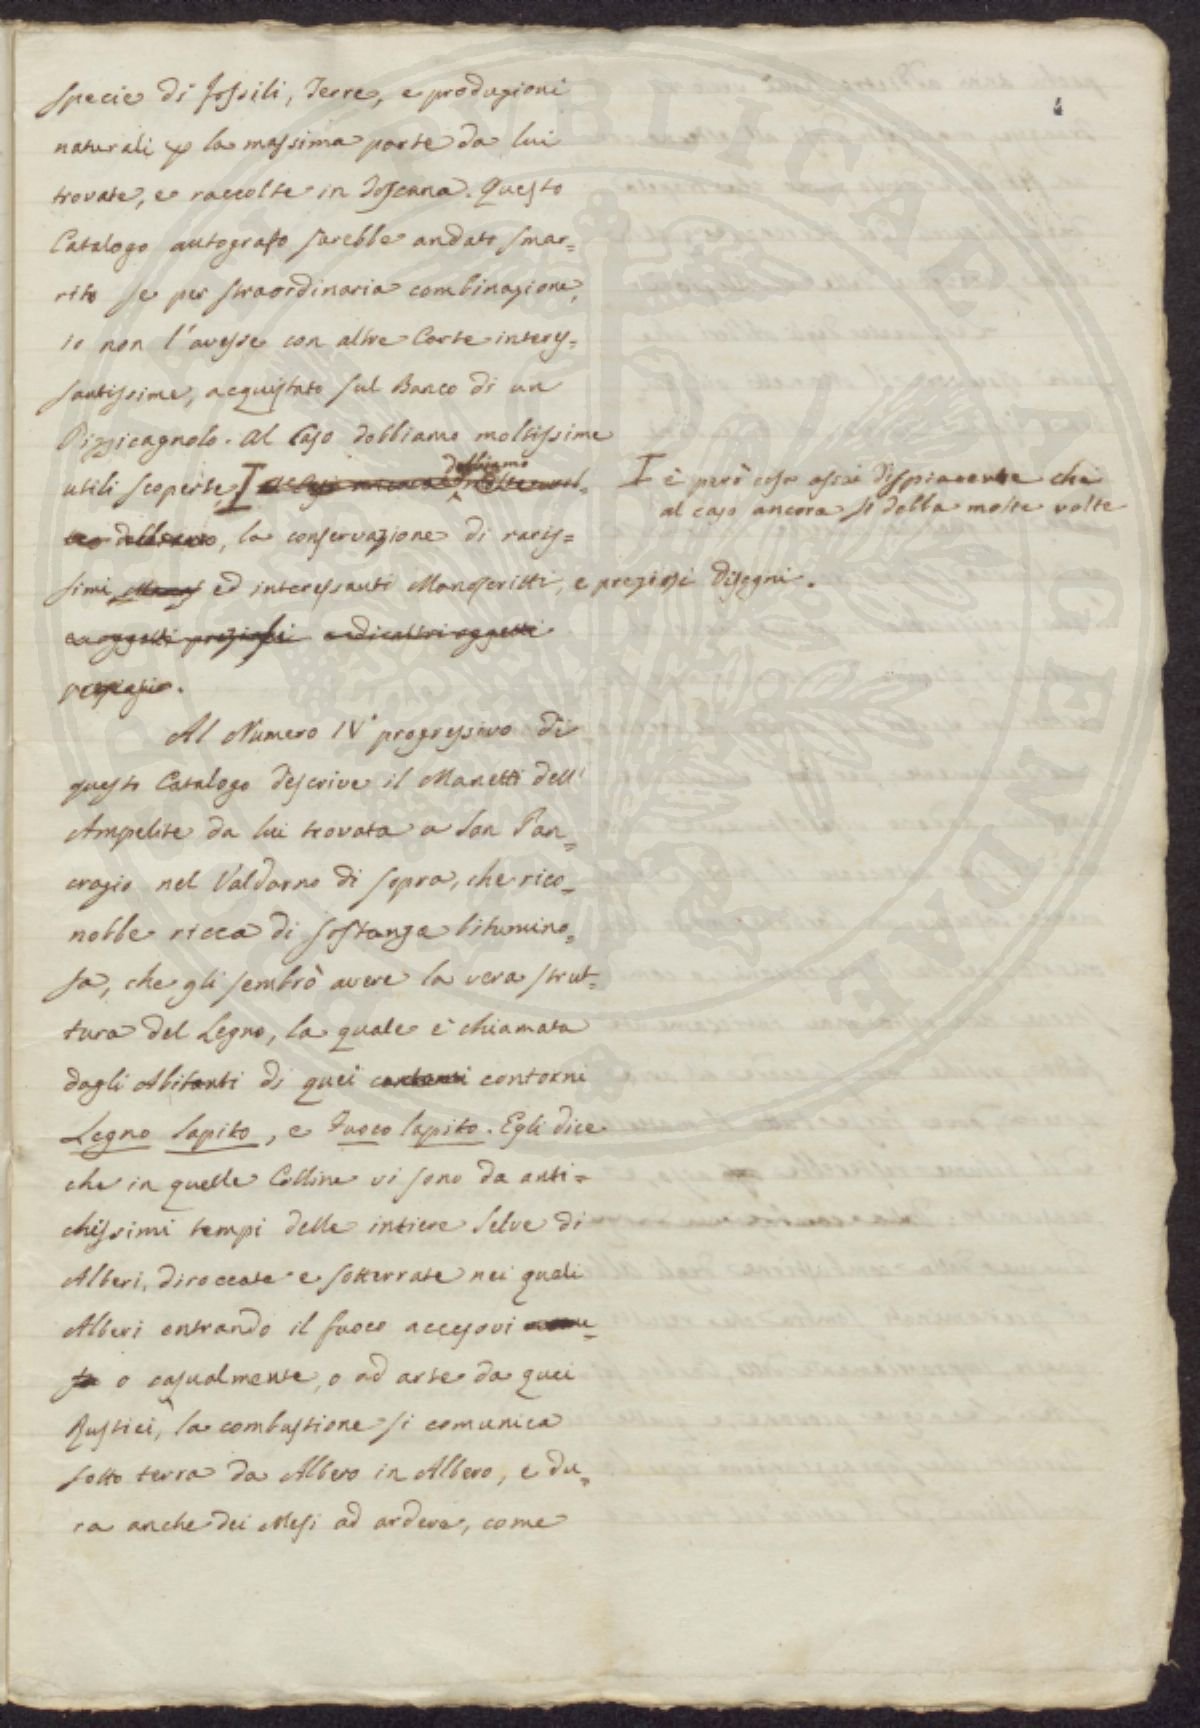 specie di fossili, Terre, e produzioni
naturali p la massima parte da lui
trovate, e raccolte in Toscana. Questo
Catalogo autografo sarebbe andato smar=
rito se per straordinaria combinazione,
io non l'avesse con altre Carte interes=
santissime, acquistato sul Banco di un
Pizzicagnolo. Al Caso dobbiamo moltissime
dobbiamo
utili scoperte, al Caso ancora molte vol=
I è però cosa assai dispiacente che
al caso ancora si debba molte volte
te dobbiamo, la conservazione di raris=
simi Manos ed interessanti Manoscritti, e preziosi disegni.
e oggetti preziosi e di altri oggetti
preziosi.
Al Numero IV° progressivo di
questo Catalogo descrive il Manetti dell'
Ampelite da lui trovata a San Pan=
crazio nel Valdarno di sopra, che rico=
nobbe ricca di sostanza bitumino=
sa, che gli sembrò avere la vera strut=
tura del Legno, la quale è chiamata
dagli Abitanti di quei contorni
Legno lapito, e Fuoco lapito. Egli dice
che in quelle Colline vi sono da anti=
chissimi tempi delle intiere Selve di
Alberi, diroccate e sotterrate nei quali
Alberi entrando il fuoco accesovi
o casualmente, o ad arte da quei
Rustici, la combustione si comunica
sotto terra da Albero in Albero, e du=
ra anche dei Mesi ad ardere, come